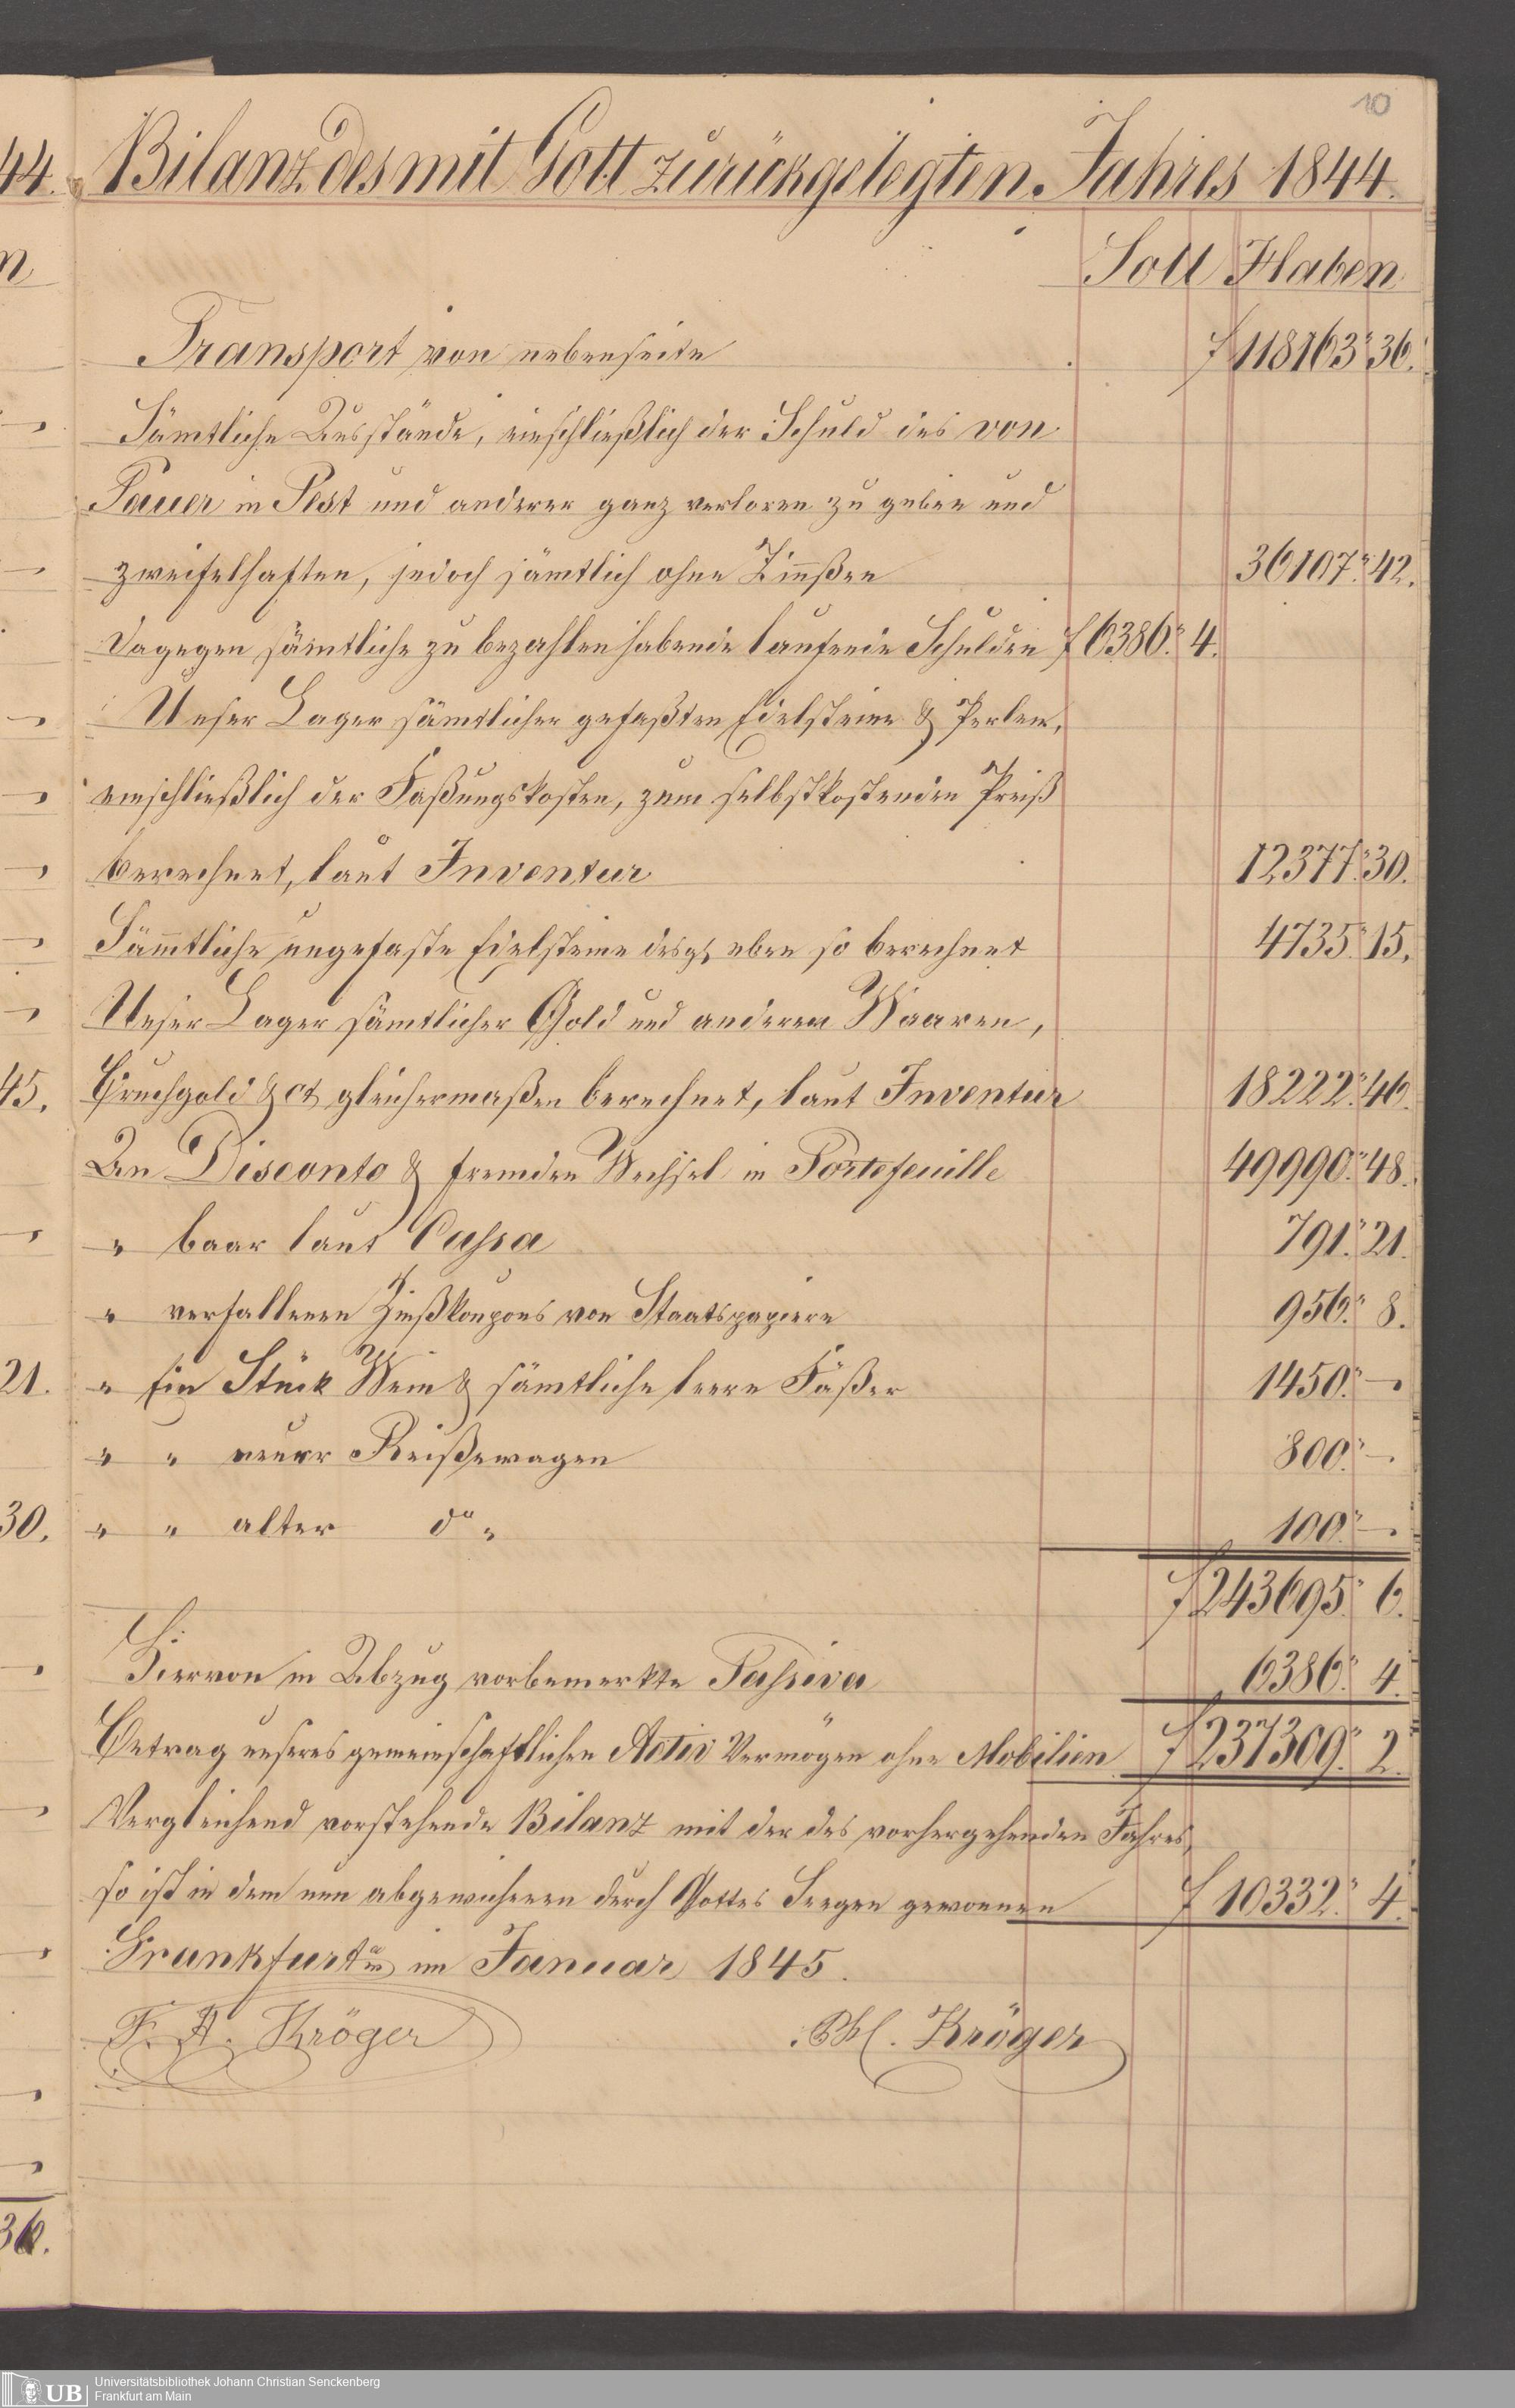 10
44. Bilanz des mit Gott zurückgelegten Jahres 1844.
n Soll Haben
Transport von nebenseite f 118163.36.
Sämtliche Ausstände, einschließlich der Schuld des von
Pauer in Pest und anderer ganz verloren zu geben und
zweifelhaften, jedoch sämtlich ohne Zinßen 36107.42.
Dagegen sämtliche zu bezahlen habende laufende Schulden f 6386. 4.
Unser Lager sämtlicher gefaßten Edelsteine & Perlen,
einschließlich der Faßungskosten, zum selbstkostenden Preiß
berechnet, laut Inventur 12377.30.
Sämtliche ungefaste Edelsteine desgl eben so berechnet 4735.15.
Unser Lager sämtlicher Gold und anderen Waaren,
45. Bruchgold & ct gleichermaßen berechnet, laut Inventur 18222.46.
An Disconto & fremden Wechsel in Portefeuille 49990.48.
" baar laut Cassa 791.21.
" verfallenen Zinßkoupons von Staatspapiere 956. 8.
21. " Ein Stück Wein & sämtliche leere Fäßer 1450. —
" " neuer Reißewagen 800. —
30. " " alter do " 100. —
f 243695. 6.
Hiervon in Abzug vorbemerkte Passiva 6386. 4.
Betrag unseres gemeinschaftlichen Activ Vermögen ohne Mobilien f 237309. 2.
Vergleichend vorstehende Bilanz mit der des vorhergehenden Jahres,
so ist in dem nun abgewichenen durch Gottes Seegen gewonnen f 10332. 4.
Frankfurt a/m im Januar 1845.
F. A. Kröger Kröger
36.
UB Universitätsbibliothek Johann Christian Senckenberg
Frankfurt am Main